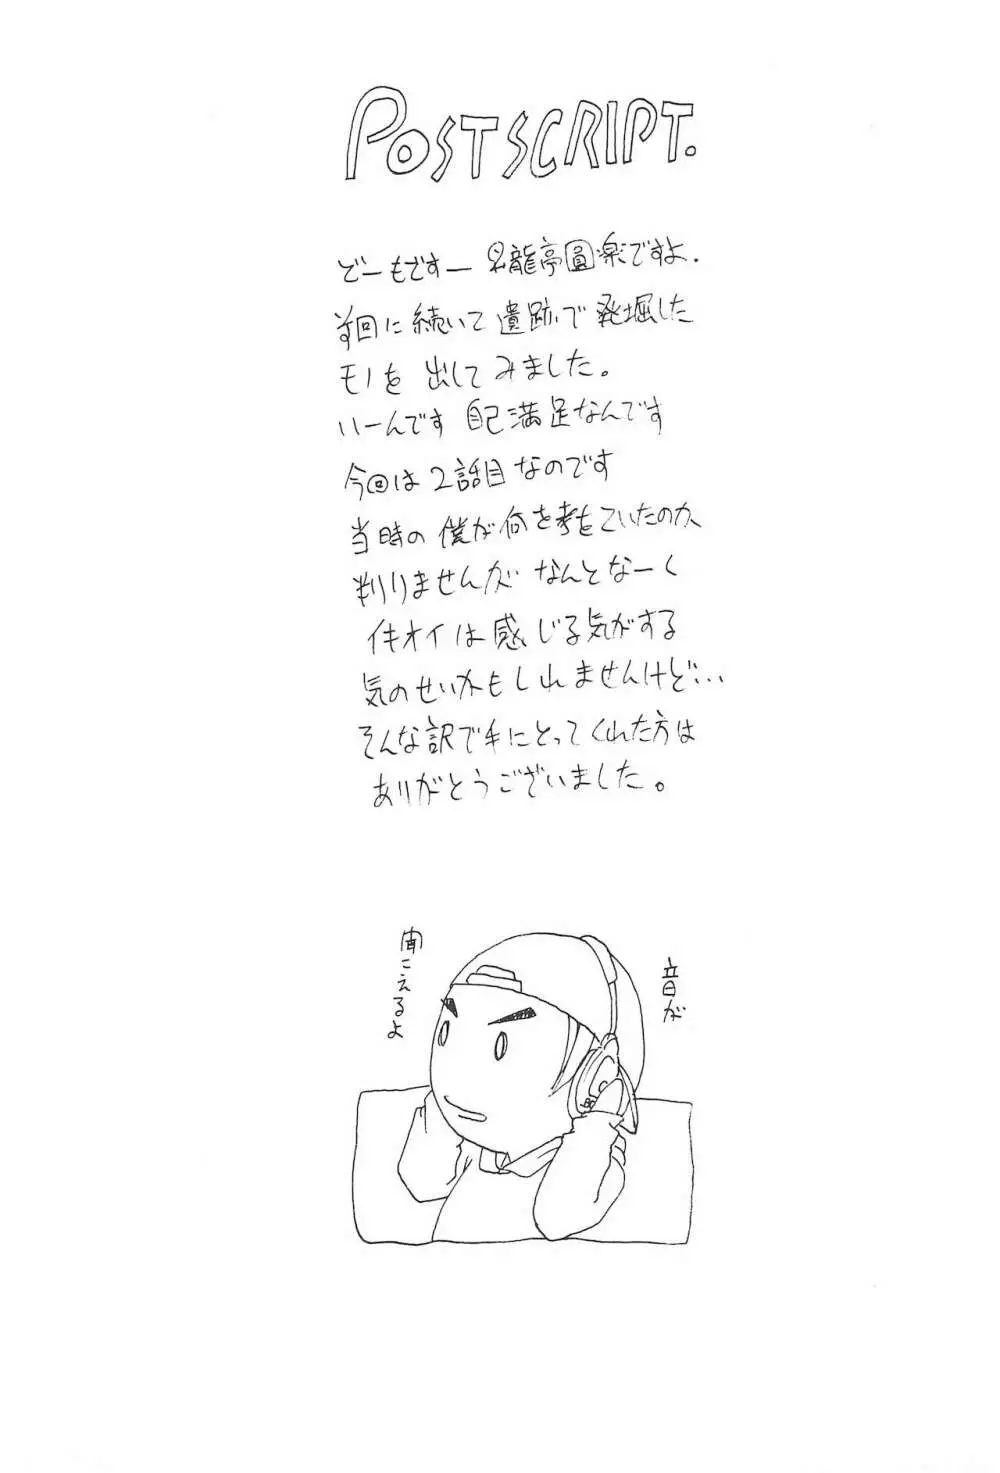 POSTSCRIPT.
どーもですー 昇龍亭圓楽ですよ.
前回に続いて遺跡で発掘した
モノを出してみました。
いーんです 自己満足なんです
今回は2話目なのです
当時の僕が何を考えていたのか、
判りませんが なんとなーく
イキオイは感じる気がする
気のせいかもしれませんけど…
そんな訳で手にとってくれた方は
ありがとうございました。
音が
聞こえるよ